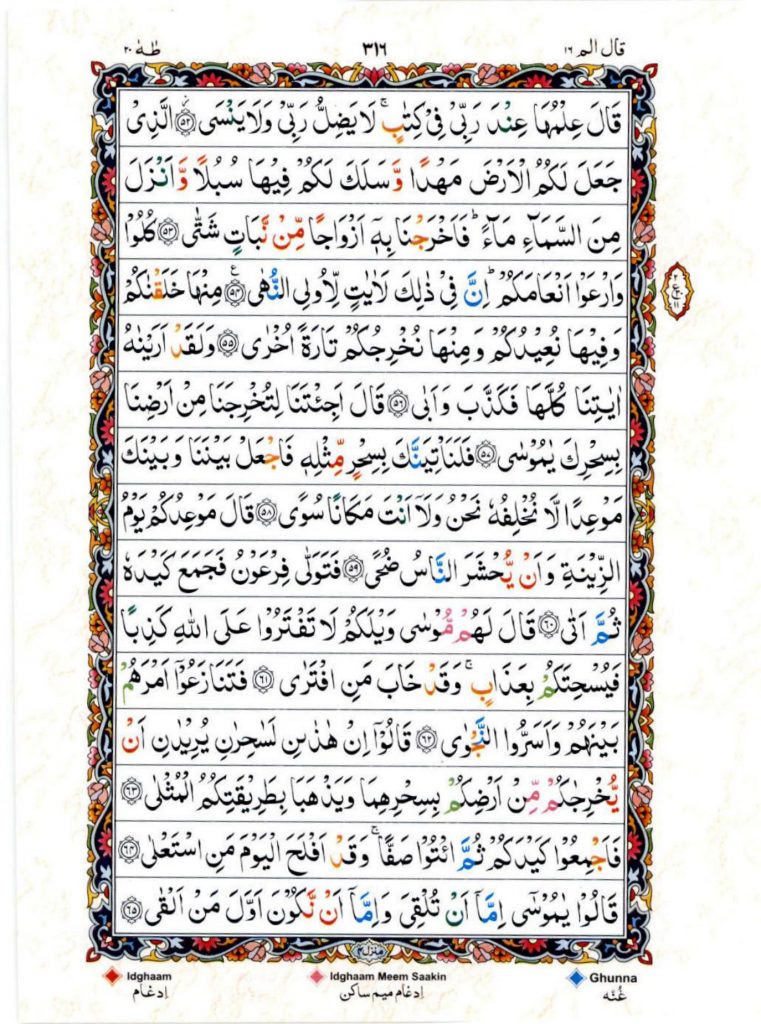 قال الم ١٦
٣١٦
طٰهٰ ٢٠
قَالَ عِلْمُهَا عِنْدَ رَبِّیْ فِیْ كِتٰبٍ ۚ لَا یَضِلُّ رَبِّیْ وَلَا یَنْسَی ۙ﴿۵۲﴾ الَّذِیْ
جَعَلَ لَكُمُ الْاَرْضَ مَهْدًا وَّسَلَكَ لَكُمْ فِیْهَا سُبُلًا وَّاَنْزَلَ
مِنَ السَّمَآءِ مَآءً ؕ فَاَخْرَجْنَا بِهٖۤ اَزْوَاجًا مِّنْ نَّبَاتٍ شَتّٰی ﴿۵۳﴾ كُلُوْا
وَارْعَوْا اَنْعَامَكُمْ ؕ اِنَّ فِیْ ذٰلِكَ لَاٰیٰتٍ لِّاُولِی النُّهٰی ﴿۵۴﴾ مِنْهَا خَلَقْنٰكُمْ
ع
٢
٣٠
١١
وَفِیْهَا نُعِیْدُكُمْ وَمِنْهَا نُخْرِجُكُمْ تَارَةً اُخْرٰی ﴿۵۵﴾ وَلَقَدْ اَرَیْنٰهُ
اٰیٰتِنَا كُلَّهَا فَكَذَّبَ وَاَبٰی ﴿۵۶﴾ قَالَ اَجِئْتَنَا لِتُخْرِجَنَا مِنْ اَرْضِنَا
بِسِحْرِكَ یٰمُوْسٰی ﴿۵۷﴾ فَلَنَاْتِیَنَّكَ بِسِحْرٍ مِّثْلِهٖ فَاجْعَلْ بَیْنَنَا وَبَیْنَكَ
مَوْعِدًا لَّا نُخْلِفُهٗ نَحْنُ وَلَاۤ اَنْتَ مَكَانًا سُوًی ﴿۵۸﴾ قَالَ مَوْعِدُكُمْ یَوْمُ
الزِّیْنَةِ وَاَنْ یُّحْشَرَ النَّاسُ ضُحًی ﴿۵۹﴾ فَتَوَلّٰی فِرْعَوْنُ فَجَمَعَ كَیْدَهٗ
ثُمَّ اَتٰی ﴿۶۰﴾ قَالَ لَهُمْ مُّوْسٰی وَیْلَكُمْ لَا تَفْتَرُوْا عَلَی اللّٰهِ كَذِبًا
فَیُسْحِتَكُمْ بِعَذَابٍ ۚ وَقَدْ خَابَ مَنِ افْتَرٰی ﴿۶۱﴾ فَتَنَازَعُوْۤا اَمْرَهُمْ
بَیْنَهُمْ وَاَسَرُّوا النَّجْوٰی ﴿۶۲﴾ قَالُوْۤا اِنْ هٰذٰىنِ لَسٰحِرٰنِ یُرِیْدٰنِ اَنْ
یُّخْرِجٰكُمْ مِّنْ اَرْضِكُمْ بِسِحْرِهِمَا وَیَذْهَبَا بِطَرِیْقَتِكُمُ الْمُثْلٰی ﴿۶۳﴾
فَاَجْمِعُوْا كَیْدَكُمْ ثُمَّ ائْتُوْا صَفًّا ۚ وَقَدْ اَفْلَحَ الْیَوْمَ مَنِ اسْتَعْلٰی ﴿۶۴﴾
قَالُوْا یٰمُوْسٰۤی اِمَّاۤ اَنْ تُلْقِیَ وَاِمَّاۤ اَنْ نَّكُوْنَ اَوَّلَ مَنْ اَلْقٰی ﴿۶۵﴾
منزل ۴
Idghaam
ادغام
Idghaam Meem Saakin
ادغام میم ساکن
Ghunna
غُنّه